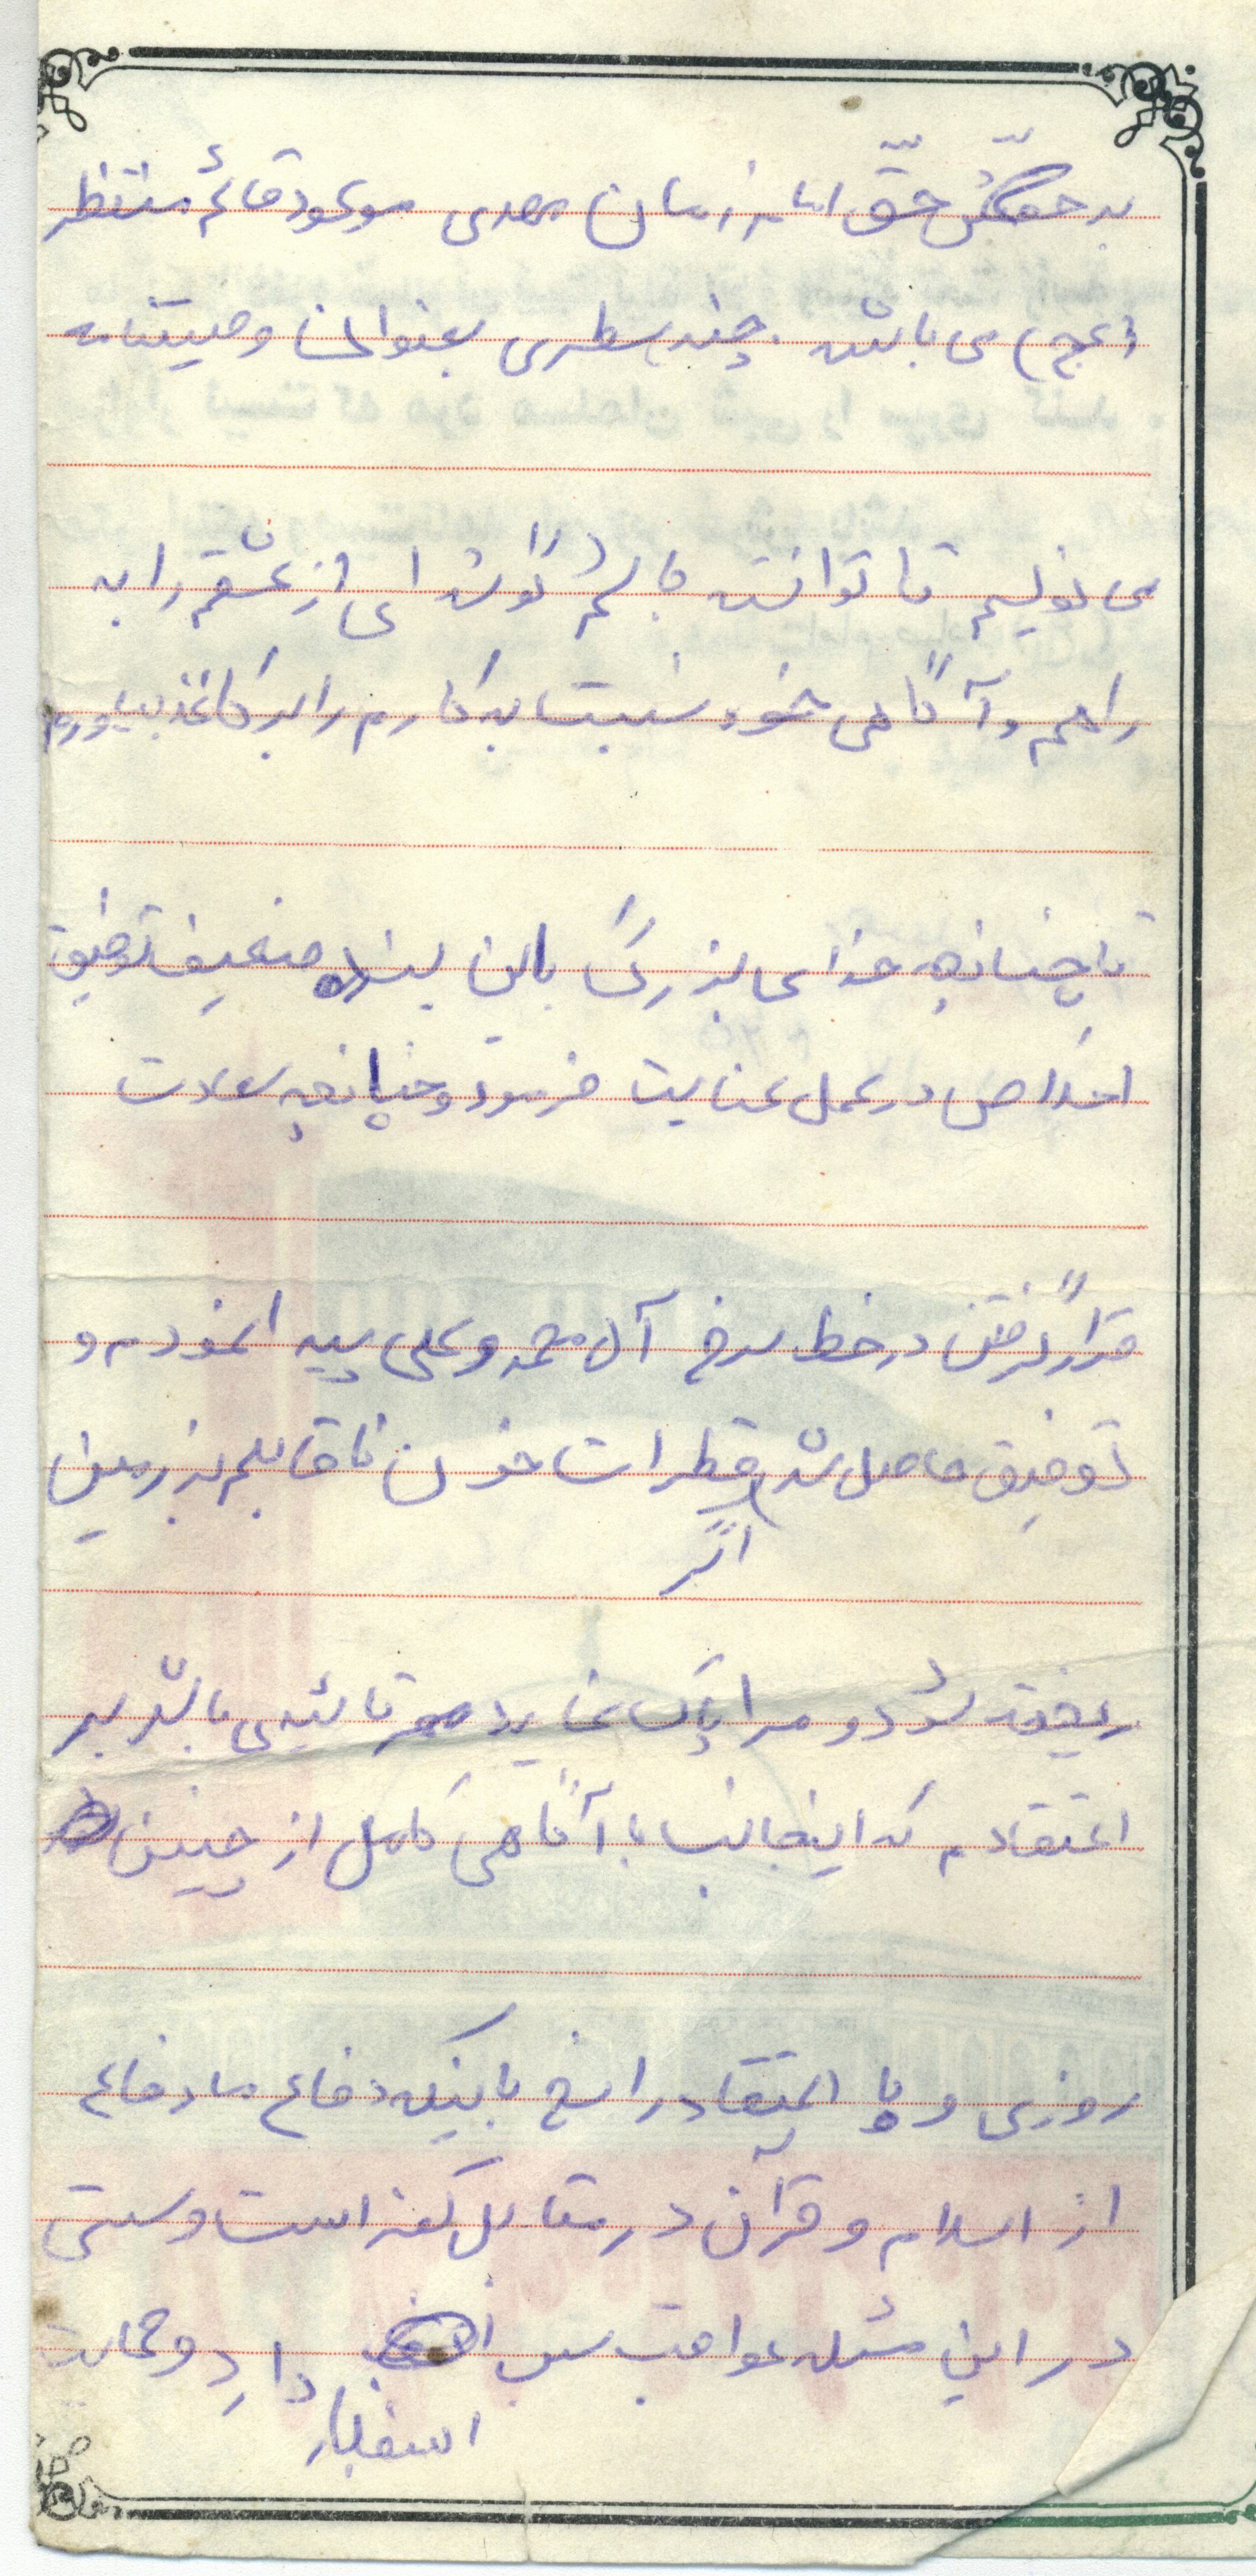 بر حقش حق امام زمان مهدی موعود قائم منتظر
(عج) می باشد. چند سطری بعنوان وصیتنامه
می نویسم تا توانسته باشم گوشه ای از عشقم را به
راهم و آگاهی خود نسبت به کارم را بر کاغذ بیاورم
تا چنانچه خدای بزرگ باین بنده ضعیف توفیق
اخلاص در عمل عنایت فرمود و چنانچه سعادت
قرار گرفتن در خط سرخ آل محمد و علی پیدا نمودم و
توفیق حاصل شد اگر قطرات خون ناقابلم بر زمین
ریخته شود و مرا پاک نماید مهر تائیدی باشد بر
اعتقادم که اینجانب با آگاهی کامل از چنین
روزی و با اعتقاد راسخ باینکه دفاع ما دفاع
از اسلام و قرآن در مقابل کفر است و سستی
در این مسئله عواقب بس اسفبار دارد و حمایت